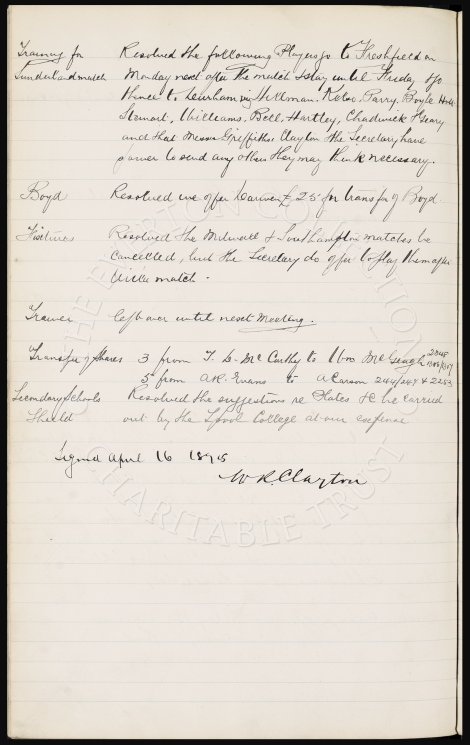 Training for Resolved the following Players go to Freshfield on
Sunderland match Monday next after the match & stay until Friday & go
thence to Durham viz Hillman. Kelso. Parry, Boyle Holt
Stewart, Williams, Bell, Hartley, Chadwick & Geary
and that Messrs Griffiths, Clayton & the Secretary have
power to send any others they may think necessary.
Boyd Resolved we offer Darwen £25 for transfer of Boyd
Fixtures Resolved the Millwall & Southampton matches be
cancelled, but the Secretary do offer to play them after
Villa match.
Trainer left over until next Meeting.
Transfer of Shares 3 from T. D. McCarthy to Wm McGeagh
5 from A.R. Evans to A Carson 244/247 & 2253
Secondary Schools Resolved the suggestions re Plates &c be carried
Shield out by the Lpool College at our expense
Signed April 16 1895
W R Clayton
THE EVERTON COLLECTION
CHARITABLE TRUST